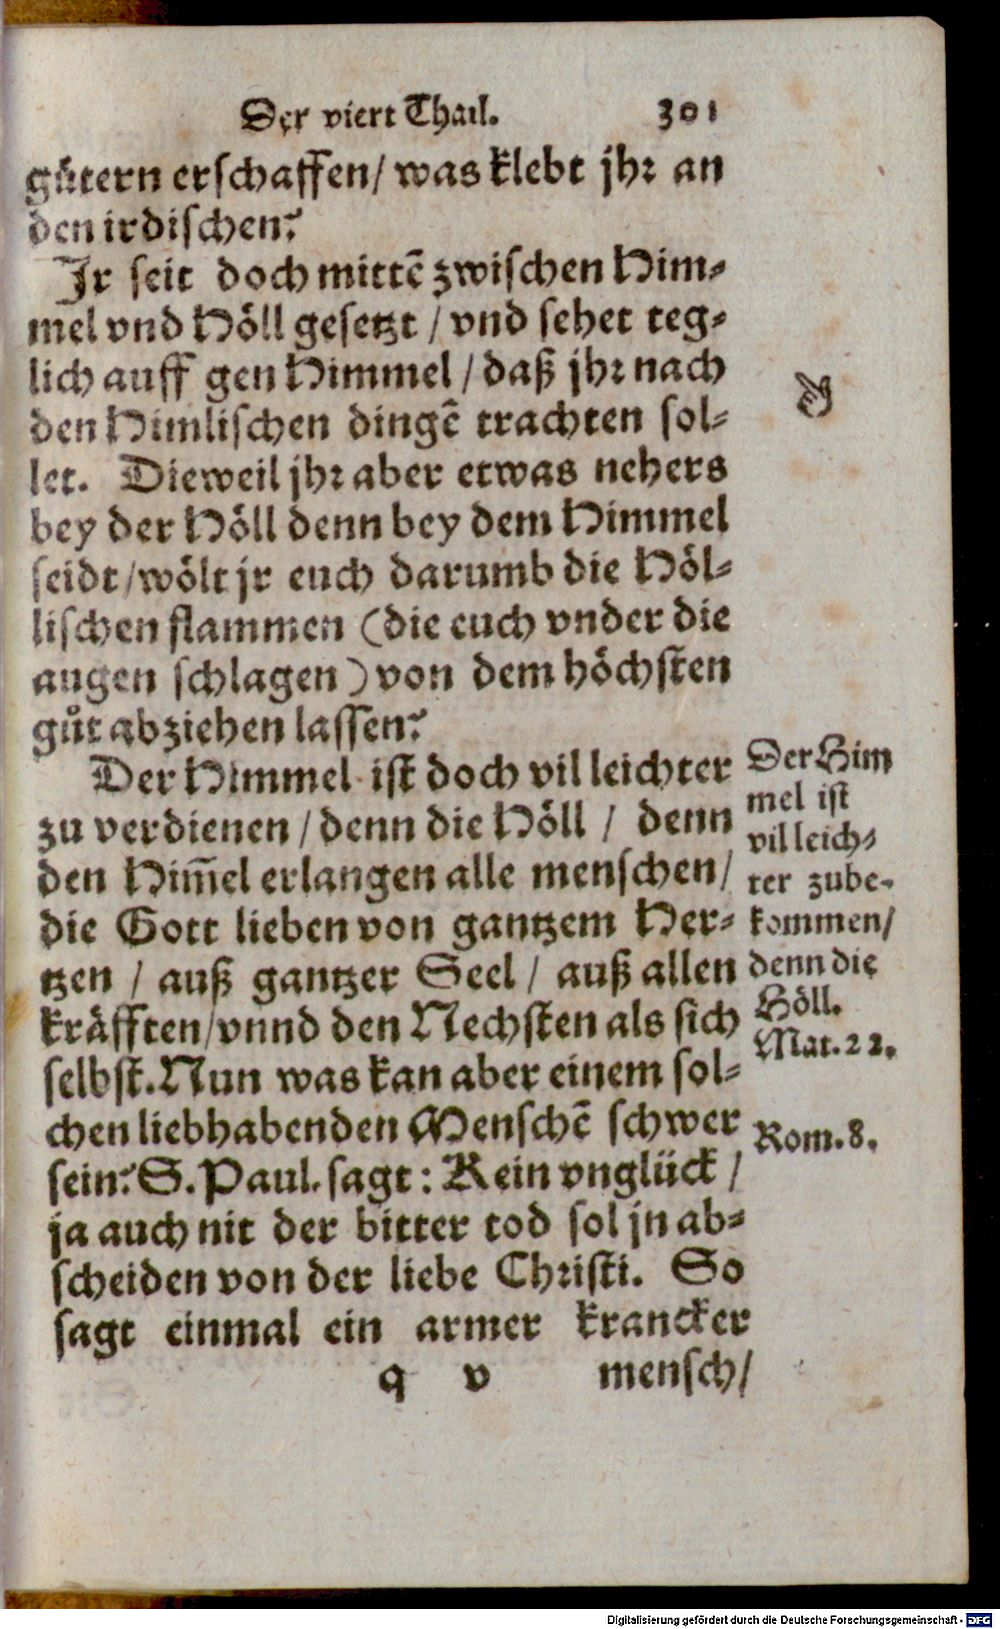 Der viert Thail. 301
guͤtern erſchaffen/ was klebt jhr an
den irdiſchen?
Jr ſeit doch mittẽ zwiſchen Him⸗
mel vnd Hoͤll geſetzt / vnd ſehet teg⸗
lich auff gen Himmel / daß jhr nach
den Himliſchen dingẽ trachten ſol⸗
let. Dieweil jhr aber etwas nehers
bey der Hoͤll denn bey dem Himmel
ſeidt/woͤlt jr euch darumb die Hoͤl⸗
liſchen flammen (die euch vnder die
augen ſchlagen) von dem hoͤchſten
guͦt abziehen laſſen?
Der Himmel ist doch vil leichter
zu verdienen / denn die Hoͤll / denn
den Him̃el erlangen alle menſchen/
die Gott lieben von gantzem Her⸗
tzen / auß gantzer Seel / auß allen
kraͤfften/vnnd den Nechſten als ſich
ſelbſt. Nun was kan aber einem ſol⸗
chen liebhabenden Menſchẽ ſchwer
ſein? S. Paul. ſagt: Kein vngluͤck /
ja auch nit der bitter tod ſol jn ab⸗
ſcheiden von der liebe Chriſti. So
ſagt einmal ein armer krancker
q v menſch/
Der Him
mel iſt
vil leich⸗
ter zube⸗
kommen/
denn die
Hoͤll.
Mat. 22.
Rom. 8.
Digitalisierung gefördert durch die Deutsche Forschungsgemeinschaft - DFG